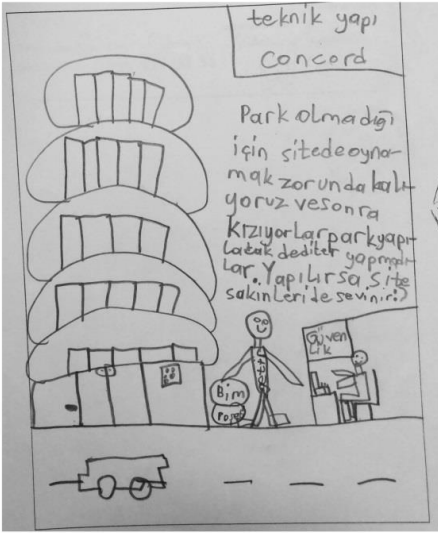 teknik yapı
Concord
Park olmadığı
için sitede oyna-
mak zorunda kalı-
yoruz ve sonra
kızıyorlar park yapı-
lacak dediler yapmadı-
lar. Yapılırsa site
sakinleri de sevinir:)
Güven
lik
Bim
Poşet